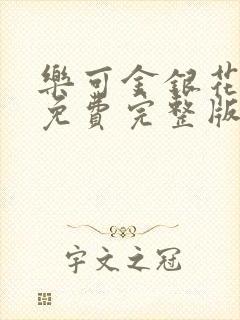 樂可金銀花
免費完整版
宇文之冠